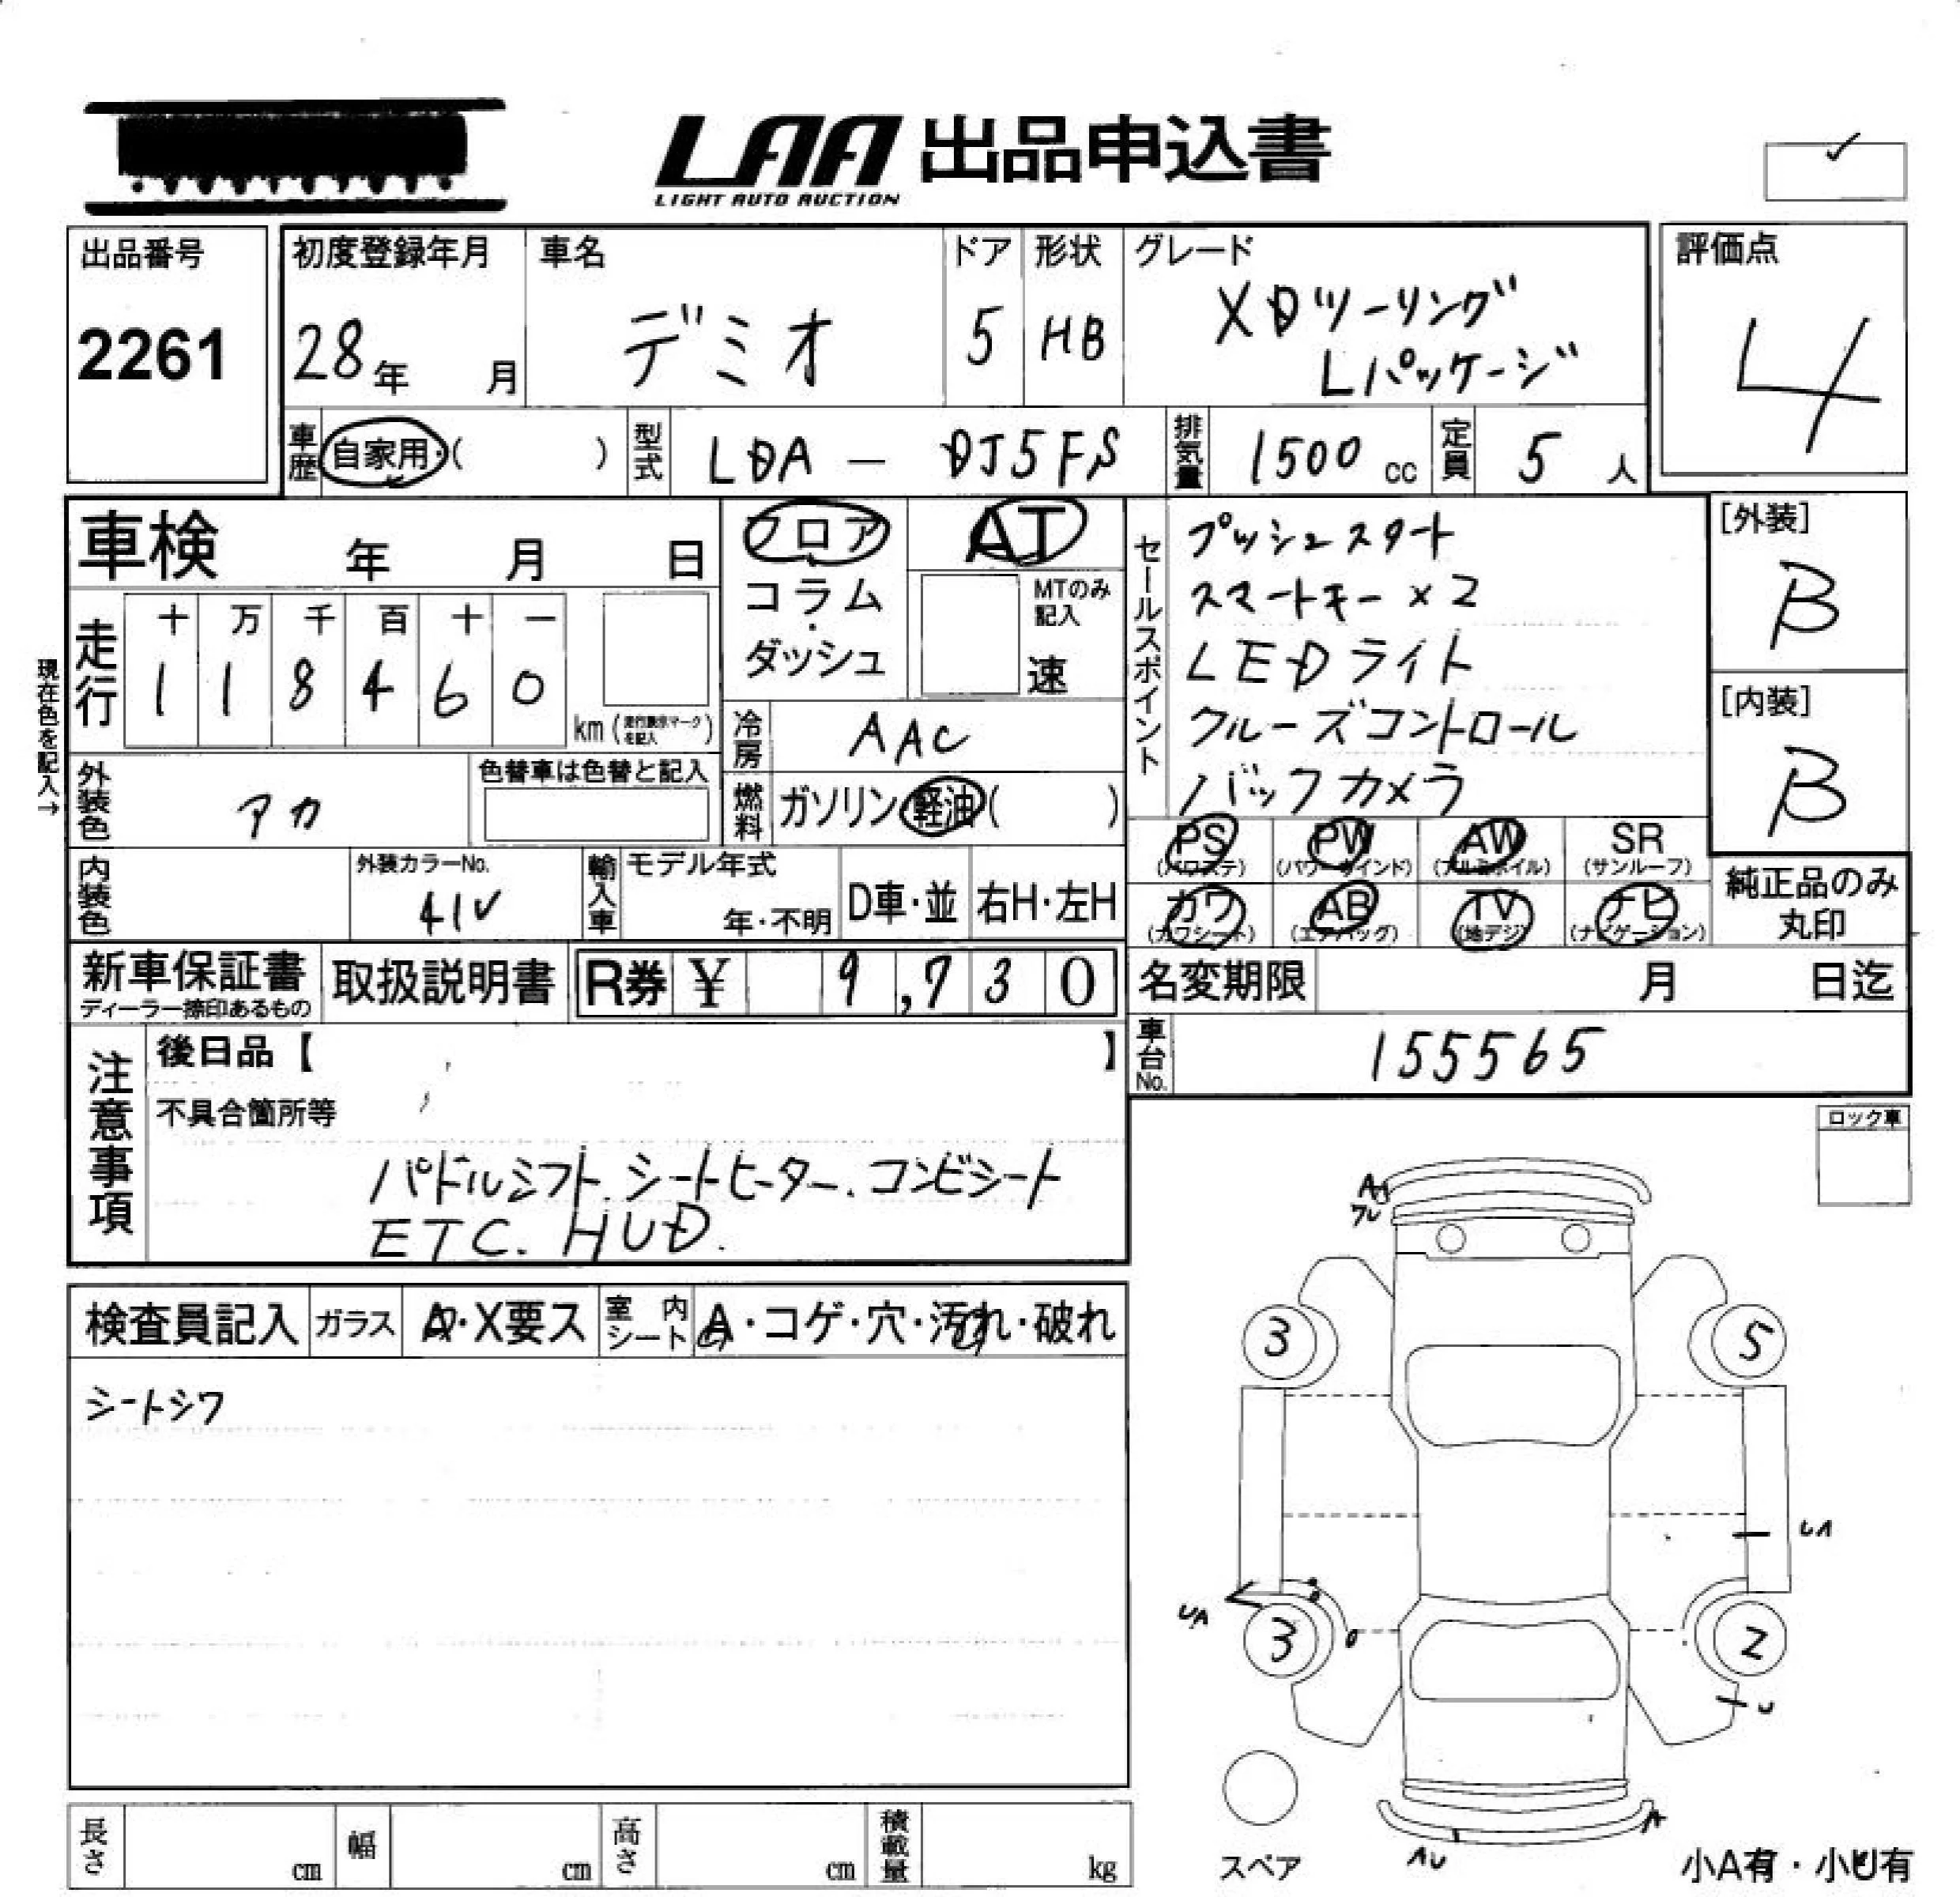 LAA 出品申込書
LIGHT AUTO AUCTION
出品番号
2261
初度登録年月
28年 月
車名
デミオ
ドア
5
形状
HB
グレード
XDツーリング
Lパッケージ
評価点
4
車歴
自家用・( )
型式
LDA - DJ5FS
排気量
1500 cc
定員
5 人
車検 年 月 日
フロア
コラム・
ダッシュ
AT
MTのみ
記入
速
セールスポイント
プッシュスタート
スマートキー×2
LEDライト
クルーズコントロール
バックカメラ
[外装]
B
[内装]
B
現在色を記入→
走行
十 万 千 百 十 一
1 1 8 4 6 0
km (走行表示マークを記入)
冷房
AAC
外装色
アカ
色替車は色替と記入
燃料
ガソリン・軽油( )
PS
(パワステ)
PW
(パワーウインド)
AW
(アルミホイル)
SR
(サンルーフ)
カワ
(カワシート)
AB
(エアバッグ)
TV
(地デジ)
ナビ
(ナビゲーション)
純正品のみ
丸印
内装色
外装カラーNo.
41V
輸入車
モデル年式
年・不明
D車・並
右H・左H
新車保証書
ディーラー捺印あるもの
取扱説明書
R券 ¥ 9,730
名変期限 月 日迄
車台No.
155565
注意事項
後日品【 】
不具合箇所等
パドルシフト.シートヒーター.コンビシート
ETC. HUD.
ロック車
検査員記入
ガラス
A・X要ス
室内シート
A・コゲ・穴・汚れ・破れ
シートシワ
A
3
5
UA
UA
3
2
U
A
AU
スペア
小A有・小U有
長さ cm
幅 cm
高さ cm
積載量 kg